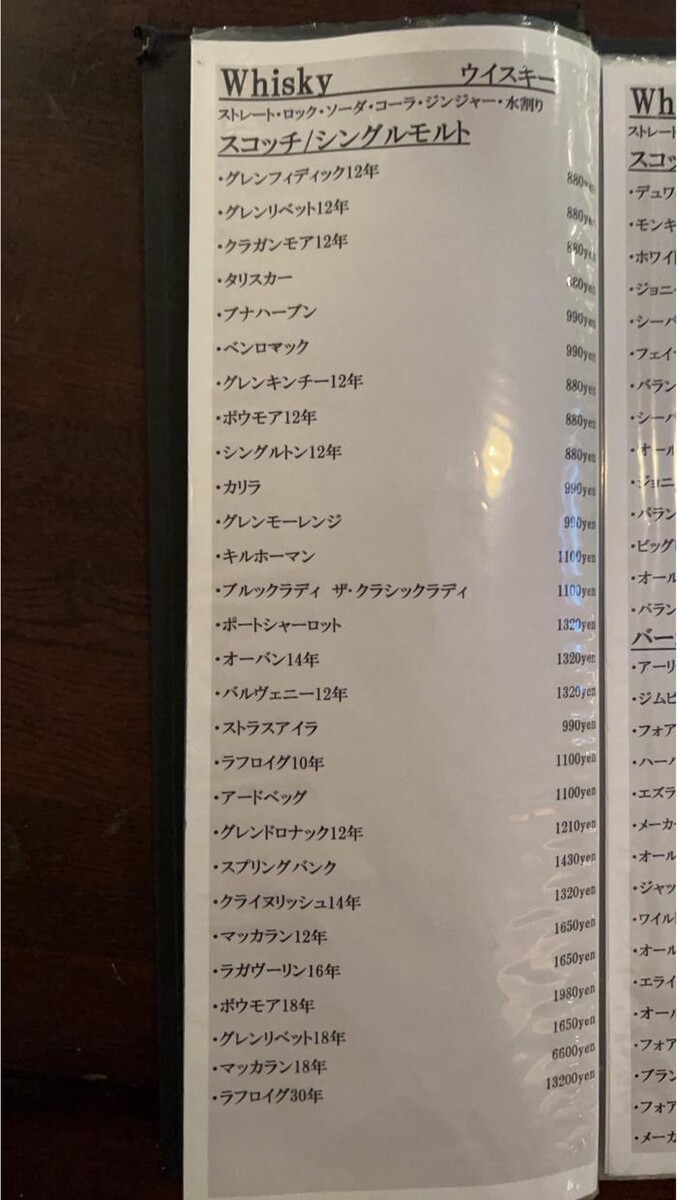 Whisky ウイスキー
ストレート・ロック・ソーダ・コーラ・ジンジャー・水割り
スコッチ/シングルモルト
・グレンフィディック12年 880yen
・グレンリベット12年 880yen
・クラガンモア12年 880yen
・タリスカー 880yen
・ブナハーブン 990yen
・ベンロマック 990yen
・グレンキンチー12年 880yen
・ボウモア12年 880yen
・シングルトン12年 880yen
・カリラ 990yen
・グレンモーレンジ 990yen
・キルホーマン 1100yen
・ブルックラディ ザ・クラシックラディ 1100yen
・ポートシャーロット 1320yen
・オーバン14年 1320yen
・バルヴェニー12年 1320yen
・ストラスアイラ 990yen
・ラフロイグ10年 1100yen
・アードベッグ 1100yen
・グレンドロナック12年 1210yen
・スプリングバンク 1430yen
・クライヌリッシュ14年 1320yen
・マッカラン12年 1650yen
・ラガヴーリン16年 1650yen
・ボウモア18年 1980yen
・グレンリベット18年 1650yen
・マッカラン18年 6600yen
・ラフロイグ30年 13200yen
Wh
ストレート
スコッ
・デュワ
・モンキ
・ホワイ
・ジョニ
・シーバ
・フェイ
・バラン
・シーバ
・オール
・ジョニ
・バラン
・ビッグ
・オール
・バラン
バー
・アーリ
・ジムビ
・フォア
・ハーパ
・エズラ
・メーカ
・オール
・ジャッ
・ワイル
・オール
・エライ
・オール
・フォア
・ブラン
・フォア
・メーカ